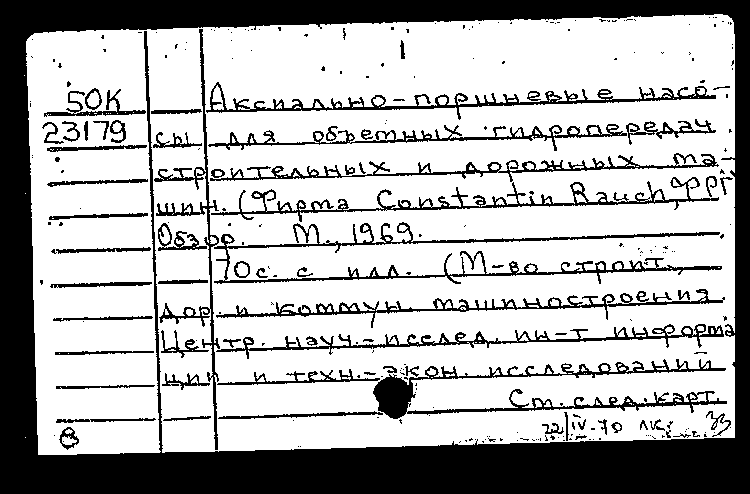 50К Аксиально-поршневые насо-
23179 сы для объемных гидропередач
строительных и дорожных ма-
шин. (Фирма Constantin Rauch, ФРГ)
Обзор. М., 1969.
70с. с илл. (М-во строит.,
дор. и коммун. машиностроения.
Центр. науч.-исслед. ин-т информа
ции и техн.-экон. исследований
Ст. след. карт.
22/IV-70 лк. 33
В